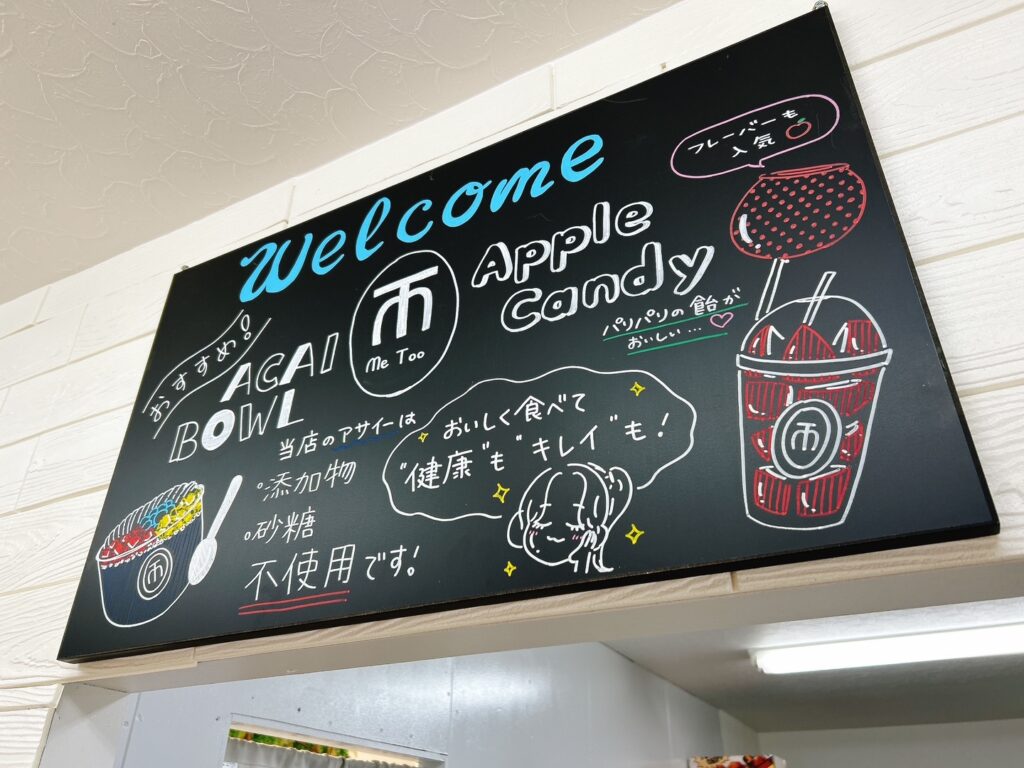 Welcome
Me Too
Apple
Candy
フレーバーも
人気
パリパリの飴が
おいしい…♡
おすすめ!
ACAI
BOWL
当店のアサイーは
・添加物
・砂糖
不使用です!
おいしく食べて
"健康"も"キレイ"も!